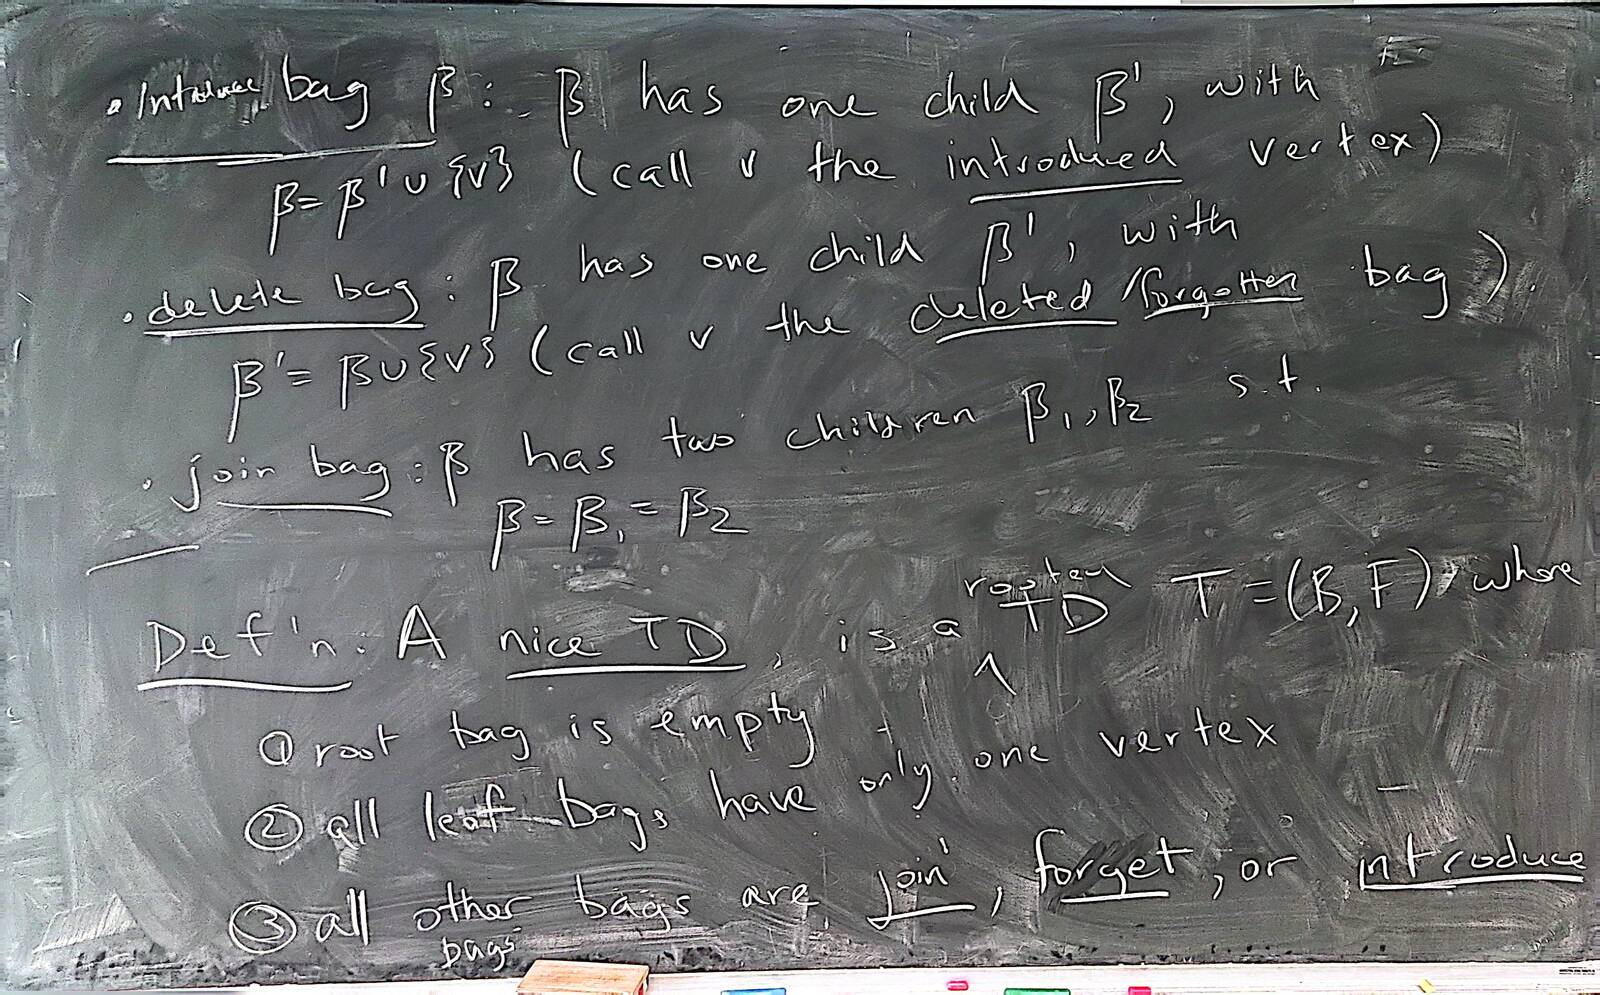 • Introduce bag β: β has one child β', with
β = β' ∪ {v} (call v the introduced vertex)
• delete bag: β has one child β', with
β' = β ∪ {v} (call v the deleted/forgotten bag).
• join bag: β has two children β₁, β₂ s.t.
β = β₁ = β₂
rooted
Def'n: A nice TD, is a ^ TD T = (B, F) where
① root bag is empty
② all leaf bags have only one vertex
③ all other bags are join, forget, or introduce
bags.